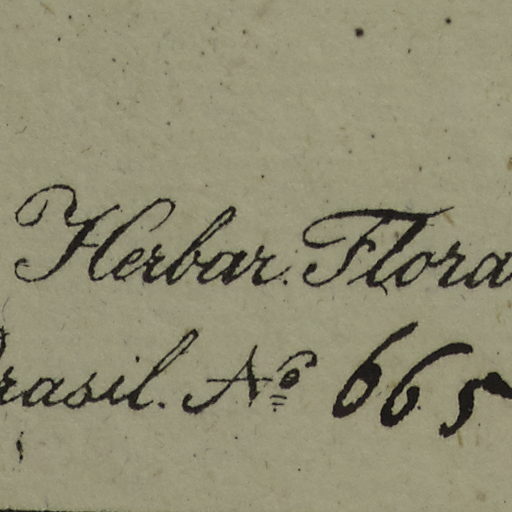 Herbar. Flora
Brasil. No 665